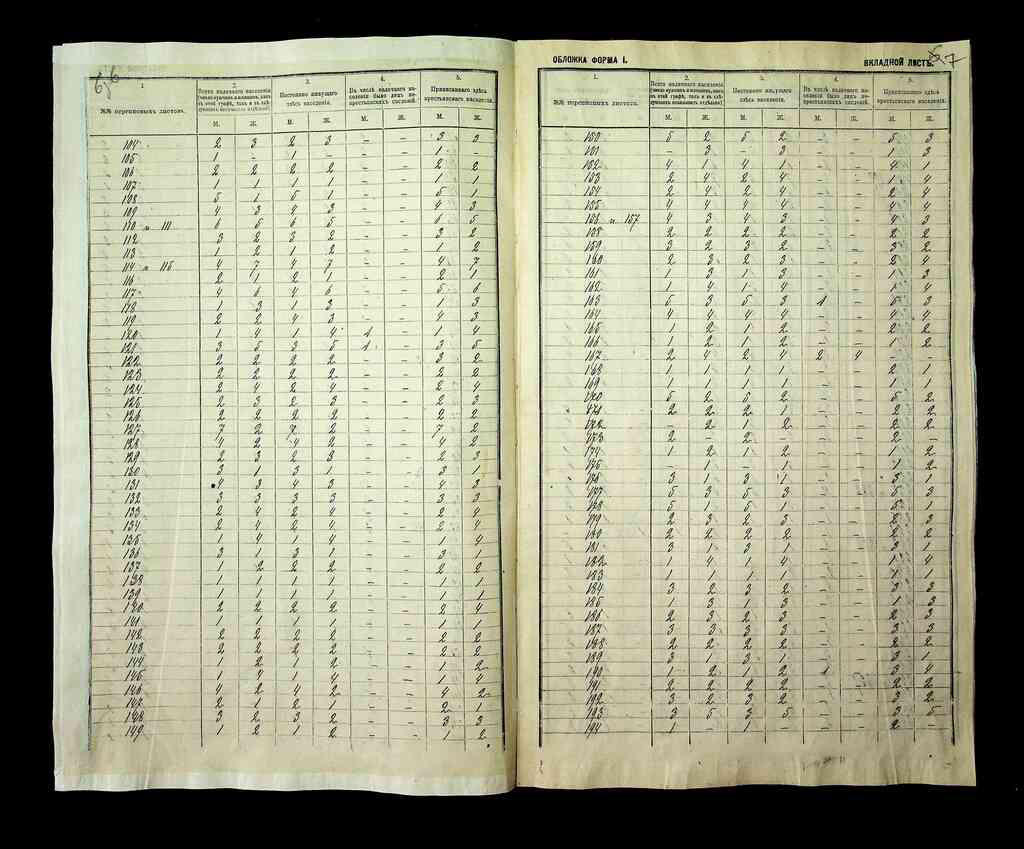 6,6
1. 2. 3. 4. 5.
№№ переписныхъ листовъ. Всего наличнаго населенія Постоянно живущаго здѣсь населенія. Въ числѣ наличнаго населенія было лицъ некрестьянскихъ сословій. Приписаннаго здѣсь крестьянскаго населенія.
М. Ж. М. Ж. М. Ж. М. Ж.
104 2 3 2 3 - - 3 3
105 1 - 1 - - - 1 -
106 2 2 2 2 - - 2 2
107 1 1 1 1 - - 1 1
108 5 1 5 1 - - 5 1
109 4 3 4 3 - - 4 3
110 и 111 6 5 6 5 - - 6 5
112 3 2 3 2 - - 3 2
113 1 2 1 2 - - 1 2
114 и 115 4 7 4 7 - - 4 7
116 2 1 2 1 - - 2 1
117 4 6 4 6 - - 5 6
118 1 3 1 3 - - 1 3
119 2 2 4 3 - - 4 3
120 1 4 1 4 1 - 1 4
121 3 5 3 5 1 - 3 5
122 2 2 2 2 - - 3 2
123 2 2 2 2 - - 2 2
124 2 4 2 4 - - 2 4
125 2 3 2 3 - - 2 3
126 2 2 2 2 - - 2 2
127 7 2 7 2 - - 7 2
128 4 2 4 2 - - 4 2
129 2 3 2 3 - - 2 3
130 3 1 3 1 - - 3 1
131 4 3 4 3 - - 4 3
132 3 3 3 3 - - 3 3
133 2 4 2 4 - - 2 4
134 2 4 2 4 - - 2 4
135 1 4 1 4 - - 1 4
136 3 1 3 1 - - 3 1
137 1 2 2 2 - - 2 2
138 1 1 1 1 - - 1 1
139 1 1 1 1 - - 1 1
140 2 2 2 2 - - 2 4
141 1 1 1 1 - - 1 1
142 2 2 2 2 - - 2 2
143 2 2 2 2 - - 2 2
144 1 2 1 2 - - 1 2
145 1 4 1 4 - - 1 4
146 4 2 4 2 - - 4 2
147 2 1 2 1 - - 2 1
148 3 2 3 2 - - 3 3
149 1 2 1 2 - - 1 2
ОБЛОЖКА ФОРМА I. ВКЛАДНОЙ ЛИСТЪ. 7
1. 2. 3. 4. 5.
№№ переписныхъ листовъ. Всего наличнаго населенія Постоянно живущаго здѣсь населенія. Въ числѣ наличнаго населенія было лицъ некрестьянскихъ сословій. Приписаннаго здѣсь крестьянскаго населенія.
М. Ж. М. Ж. М. Ж. М. Ж.
150 5 2 5 2 - - 5 3
151 3 - 3 - - 1 3
152 4 1 4 1 - - 4 1
153 2 4 2 4 - - 1 4
154 2 4 2 4 - - 2 4
155 4 4 4 4 - - 4 4
156 и 157 4 3 4 3 - - 4 3
158 2 2 2 2 - - 2 2
159 3 2 3 2 - - 3 2
160 2 3 2 3 - - 2 4
161 1 3 1 3 - - 1 3
162 1 4 1 4 - - 1 4
163 5 3 5 3 1 - 5 3
164 4 4 4 4 - - 4 4
165 1 2 1 2 - - 2 2
166 1 2 1 2 - - 1 2
167 2 4 2 4 2 4 - -
168 1 1 1 1 - - 2 1
169 1 1 1 1 - - 1 1
170 5 2 5 2 - - 5 2
171 2 2 2 1 - - 2 2
172 - 2 1 2 - - 2 2
173 2 - 2 - - - 2 -
174 1 2 1 2 - - 1 2
175 - 1 - 1 - - 1 2
176 3 1 3 1 - - 3 1
177 5 3 5 3 - - 5 3
178 5 1 5 1 - - 5 1
179 2 3 2 3 - - 2 3
180 2 2 2 2 - - 2 2
181 3 1 3 1 - - 3 1
182 1 4 1 4 - - 1 4
183 1 1 1 1 - - 1 1
184 3 2 3 2 - - 3 3
185 1 3 1 3 - - 1 3
186 2 3 2 3 - - 2 3
187 3 3 3 3 - - 3 3
188 2 2 2 2 - - 2 2
189 3 1 3 1 - - 3 1
190 1 2 1 2 1 - 3 4
191 2 2 2 2 - - 2 2
192 3 2 3 2 - - 3 2
193 3 5 3 5 - - 3 5
194 1 - 1 - - - 2 -